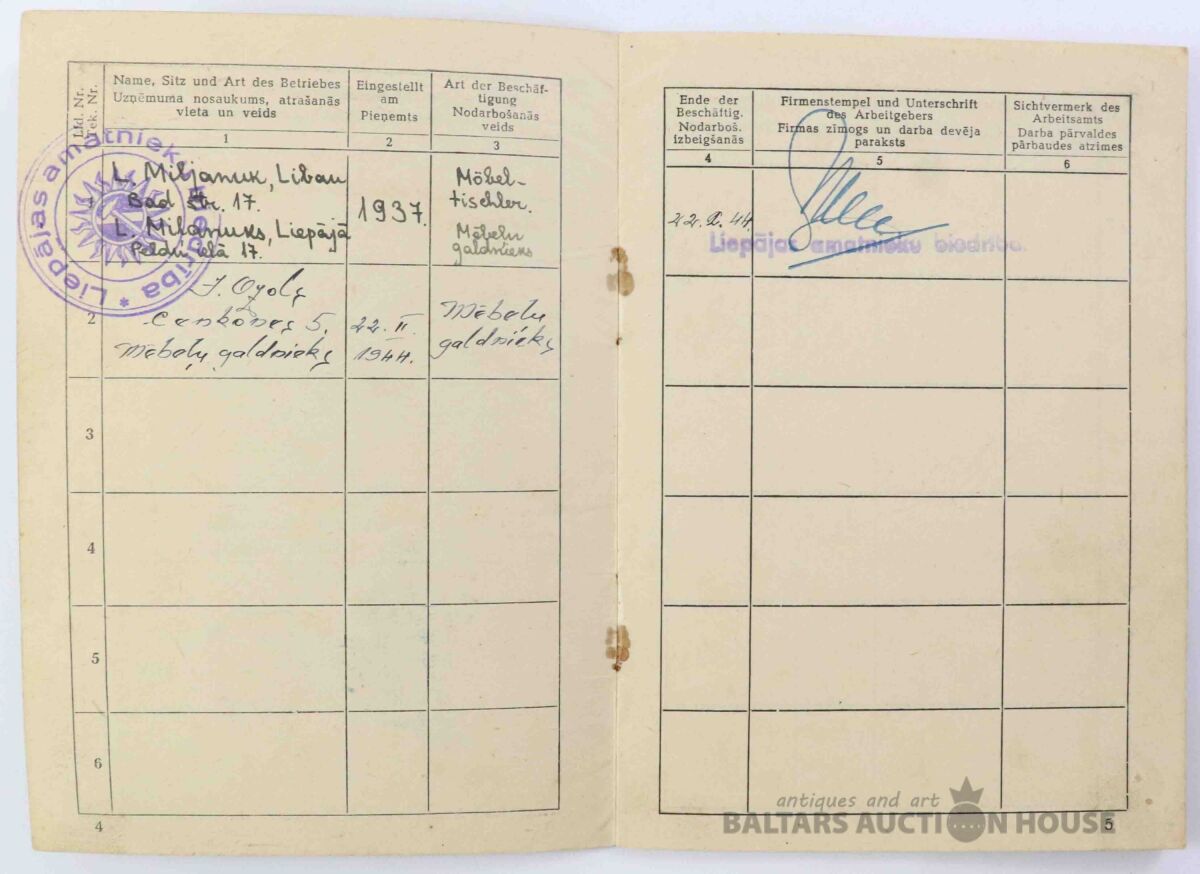 Lfd. Nr.
Tek. Nr.
Name, Sitz und Art des Betriebes
Uzņēmuma nosaukums, atrašanās
vieta un veids
Eingestellt
am
Pieņemts
Art der Beschäf-
tigung
Nodarbošanās
veids
1
2
3
Liepājas amatnieku biedrība *
L. Miljanuk, Libau
Bad Str. 17.
L. Miļanuks, Liepājā
Peldu ielā 17.
1937.
Möbel-
tischler.
Mēbeļu
galdnieks
2
J. Ozols
5,
Mēbeļu galdnieks
22. II.
1944.
Mēbeļu
galdnieks
3
4
5
6
4
Ende der
Beschäftig.
Nodarboš.
izbeigšanās
Firmenstempel und Unterschrift
des Arbeitgebers
Firmas zīmogs un darba devēja
paraksts
Sichtvermerk des
Arbeitsamts
Darba pārvaldes
pārbaudes atzīmes
4
5
6
44.
Liepājas amatnieku biedrība.
5
antiques and art
BALTARS AUCTION HOUSE